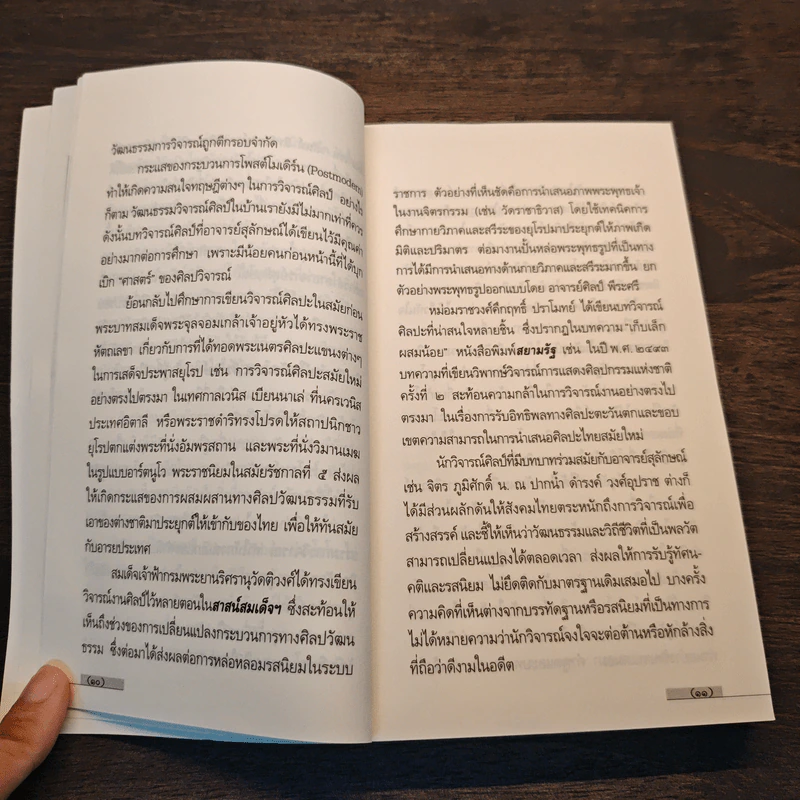 วัฒนธรรมการวิจารณ์ถูกตีกรอบจำกัด
กระแสของกระบวนการโพสต์โมเดิร์น (Postmodern)
ทำให้เกิดความสนใจทฤษฎีต่างๆ ในการวิจารณ์ศิลป์ อย่างไร
ก็ตาม วัฒนธรรมวิจารณ์ศิลป์ในบ้านเรายังมีไม่มากเท่าที่ควร
ดังนั้นบทวิจารณ์ศิลป์ที่อาจารย์สุลักษณ์ได้เขียนไว้มีคุณค่า
อย่างมากต่อการศึกษา เพราะมีน้อยคนก่อนหน้านี้ที่ได้บุก
เบิก “ศาสตร์” ของศิลปวิจารณ์
ย้อนกลับไปศึกษาการเขียนวิจารณ์ศิลปะในสมัยก่อน
พระบาทสมเด็จพระจุลจอมเกล้าเจ้าอยู่หัวได้ทรงพระราช
หัตถเลขา เกี่ยวกับการที่ได้ทอดพระเนตรศิลปะแขนงต่างๆ
ในการเสด็จประพาสยุโรป เช่น การวิจารณ์ศิลปะสมัยใหม่
อย่างตรงไปตรงมา ในเทศกาลเวนิส เบียนนาเล่ ที่นครเวนิส
ประเทศอิตาลี หรือพระราชดำริทรงโปรดให้สถาปนิกชาว
ยุโรปตกแต่งพระที่นั่งอัมพรสถาน และพระที่นั่งวิมานเมฆ
ในรูปแบบอาร์ตนูโว พระราชนิยมในสมัยรัชกาลที่ ๕ ส่งผล
ให้เกิดกระแสของการผสมผสานทางศิลปวัฒนธรรมที่รับ
เอาของต่างชาติมาประยุกต์ให้เข้ากับของไทย เพื่อให้ทันสมัย
กับอารยประเทศ
สมเด็จเจ้าฟ้ากรมพระยานริศรานุวัดติวงศ์ได้ทรงเขียน
วิจารณ์งานศิลป์ไว้หลายตอนในสาสน์สมเด็จฯ ซึ่งสะท้อนให้
เห็นถึงช่วงของการเปลี่ยนแปลงกระบวนการทางศิลปวัฒน
ธรรม ซึ่งต่อมาได้ส่งผลต่อการหล่อหลอมรสนิยมในระบบ
(๑๐)
ราชการ ตัวอย่างที่เห็นชัดคือการนำเสนอภาพพระพุทธเจ้า
ในงานจิตรกรรม (เช่น วัดราชาธิวาส) โดยใช้เทคนิคการ
ศึกษากายวิภาคและสรีระของยุโรปมาประยุกต์ให้ภาพเกิด
มิติและปริมาตร ต่อมางานปั้นหล่อพระพุทธรูปที่เป็นทาง
การได้มีการนำเสนอทางด้านกายวิภาคและสรีระมากขึ้น ยก
ตัวอย่างพระพุทธรูปออกแบบโดย อาจารย์ศิลป์ พีระศรี
หม่อมราชวงศ์คึกฤทธิ์ ปราโมทย์ ได้เขียนบทวิจารณ์
ศิลปะที่น่าสนใจหลายชิ้น ซึ่งปรากฏในบทความ “เก็บเล็ก
ผสมน้อย” หนังสือพิมพ์สยามรัฐ เช่น ในปี พ.ศ. ๒๔๙๓
บทความที่เขียนวิพากษ์วิจารณ์การแสดงศิลปกรรมแห่งชาติ
ครั้งที่ ๒ สะท้อนความกล้าในการวิจารณ์งานอย่างตรงไป
ตรงมา ในเรื่องการรับอิทธิพลทางศิลปะตะวันตกและขอบ
เขตความสามารถในการนำเสนอศิลปะไทยสมัยใหม่
นักวิจารณ์ศิลป์ที่มีบทบาทร่วมสมัยกับอาจารย์สุลักษณ์
เช่น จิตร ภูมิศักดิ์ น. ณ ปากน้ำ ดำรงค์ วงศ์อุปราช ต่างก็
ได้มีส่วนผลักดันให้สังคมไทยตระหนักถึงการวิจารณ์เพื่อ
สร้างสรรค์ และชี้ให้เห็นว่าวัฒนธรรมและวิถีชีวิตที่เป็นพลวัต
สามารถเปลี่ยนแปลงได้ตลอดเวลา ส่งผลให้การรับรู้ทัศน-
คติและรสนิยม ไม่ยึดติดกับมาตรฐานเดิมเสมอไป บางครั้ง
ความคิดที่เห็นต่างจากบรรทัดฐานหรือรสนิยมที่เป็นทางการ
ไม่ได้หมายความว่านักวิจารณ์จงใจจะต่อต้านหรือหักล้างสิ่ง
ที่ถือว่าดีงามในอดีต
(๑๑)